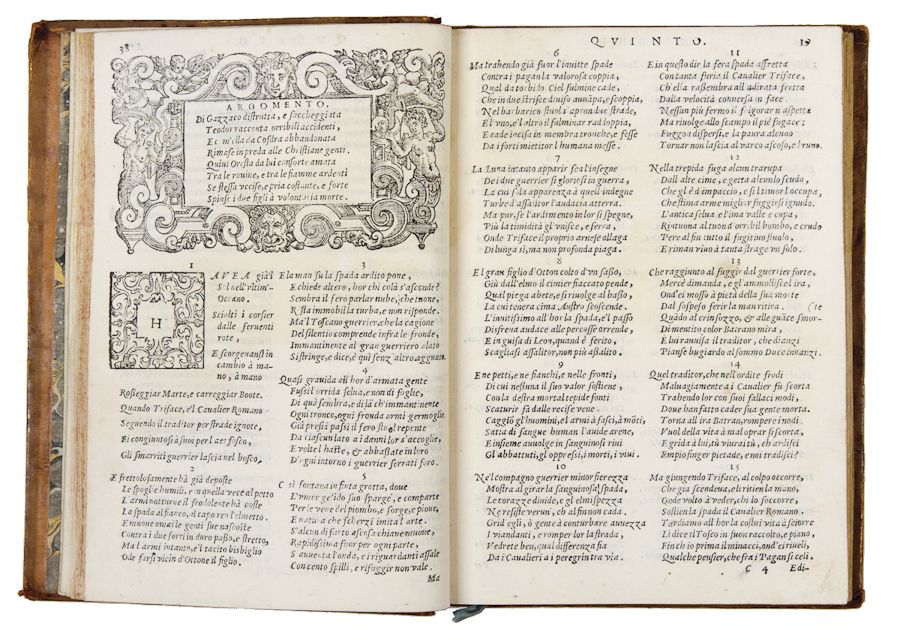 38
ARGOMENTO.
Di Gazzaco distrutta, e saccheggiata
Teodor racconta orribili accidenti,
E com' ella da Cosdra abbandonata
Rimase in preda alle Christiane genti.
Quiui Oresta da lui consorte amata
Tra le rouine, e tra le fiamme ardenti
Se stessa vccise, e pria costante, e forte
Spinse i due figli à volontaria morte.
1
HAVEA già i
Sol nell' vltim'
Occano.
Sciolti i corsier
dalle feruenti
rote,
E scorgeuansi in
cambio à ma-
no, à mano
Rosseggiar Marte, e carreggiar Boote.
Quando Triface, e'l Caualier Romano
Seguendo il traditor per strade ignote,
Si congiunto à suoi per l' aer fosco,
Gli smarriti guerrier lascia nel bosco.
2
E frettolosamente hà già deposte
Le spoglie humili, e in quella vece al petto
L'armi notturne il frodolente hà poste
La spada al fianco, al capo reo l'elmetto.
E muoue omai le genti sue nascoste
Contra i due forti in duro passo, e stretto,
Ma l' armi intanto, e'l tacito bisbiglio
Ode farsi vicin d'Ottone il figlio.
3
E la man su la spada ardito pone,
E chiede altero, hor chi colà s'asconde?
Sembra il fero parlar nube, che tuone,
Resta immobil la turba, e non risponde.
Ma'l Toscano guerrier, che la cagione
Del silentio comprende infra le fronde,
Immantinente al gran guerriero a lato
Si stringe, e dice, è quì senz' altro agguato.
4
Quasi grauida all' hor d'armata gente
Fuss' il orrida selua, e non di foglie,
Di quà sembra, e di là ch' immantinente
Ogni tronco, ogni fronda armi germoglie.
Già presti passi il fero stuol repente
Da ciascun lato a i danni lor s'accoglie,
E volte l' haste, & abbassate in loro
D' ogni intorno i guerrier serrati foro.
5
Così fontana in finta grotta, doue
L'vmor gelido suo sparge, e comparte
Per le vene del piombo, e sorge, e pioue,
E natura che scherzi imita l' arte.
S'alcun di furto ascosa chiaue muoue,
Rapidissima fuor per ogni parte,
S' auuenta l'onda, e i riguardanti assale
Con cento spilli, e rifuggir non vale.
Ma
QVINTO.
39
6
Ma trahendo già fuor l'inuitte spade
Contra i pagani la valorosa coppia,
Qual da torbido Ciel fulmine cade,
Che in due strisce diuiso auuãpa, e scoppia,
Nel barbarico stuol s' apron due strade,
E l' vno, e l' altro il fulminar raddoppia,
E cade incisa in membra tronche, e fesse
Da i forti mietitor l'humana messe.
7
La Luna intanto apparir fea l'insegne
De i due guerrier sì gloriosi in guerra,
La cui sola apparenza à quell' indegne
Turbe d' assaditor l'audacia atterra.
Ma pur se l'ardimento in lor si spegne,
Più la timidità gl' vnisce, e serra,
Onde Triface il proprio arnese allaga
Di lunga sì, ma non profonda piaga.
8
El gran figlio d' Otton colto d'vn sasso,
Giù dall' elmo il cimier fiaccato pende,
Qual piega abete, e si riuolge al basso,
La cui tenera cima Austro scoscende.
L'inuitissimo all' hor la spada, e'l passo
Disfrena audace alle percosse orrende,
E in guisa di Leon, quand' è ferito,
Scagliasi assalitor, non più assalito.
9
E ne petti, e ne fianchi, e nelle fronti,
Di cui nessuna il suo valor sostiene,
Con la destra mortal tepide fonti
Scaturir fà dalle recise vene.
Caggiõ gl' huomini, e l' armi à fasci, à mõti,
Satia di sangue human l'aude arene,
E insieme auuolge in sanguinosi riui
Gl' abbattuti, gl' oppressi, i morti, i viui.
10
Nel compagno guerrier minor fierezza
Mostra al girar la sanguinosa spada,
Le corazze diuide, e gl' elmi spezza
Ne resiste verun, cõ al fin non cada.
Grid' egli, ò gente à conturbare auuezza
I viandanti, e romper lor la strada,
Vedrete ben, qual differenza sia
Da i Caualieri a i peregrin tra via.
11
E in questo dir la fera spada affretta
Con tanta furia il Caualier Triface,
Ch'ella rassembra all' adirata fretta
Dalla velocità conuersa in face
Nessun più fermo il folgorar n' aspetta
Ma riuolge allo scampo il piè fugace;
Fuggon dispersi, e la paura alcuno
Tornar non lascia al varco ascoso, e bruno.
12
Nella trepida fuga alcun trarupa
Dall' alte cime, e getta alcun lo scudo,
Che gl' è d'impaccio, e sì l timor l'occupa,
Che stima arme miglior fuggirsi ignudo.
L'antica selua, e l'ima valle e cupa,
Rintuona al tuono orribil bombo, e crudo
Pere al fin tutto il fugitiuo stuolo,
E riman viuo à tanta strage vn solo.
13
Che raggiunto al fuggir dal guerrier forte,
Mercè dimanda, e gl' ammollisce l ira,
Ond' ei mosso à pietà della sua morte
Dal sospeso ferir la man ritira. (te
Quãdo al crin sozzo, & alle guãce smor-
Di mentito color Batrano mira,
E lui rauuisa il traditor, che dianzi
Pianse bugiardo al sommo Duce innanzi.
14
Quel traditor, che nell'ordite frodi
Maluagiamente a i Caualier fù scorta
Trahendo lor con suoi fallaci modi,
Doue han fatto cader sua gente morta.
Torna all' ira Batran, rompere i nodi
Vuol della vita à mal oprar sì scorta,
E grida à lui, tù viurai tù, ch' ardisci
Empio finger pietade, e noi tradisci?
15
Ma giungendo Triface, al colpo occorre,
Che già scendeua, e li ritien la mano,
Onde volto à veder, chi lo soccorre,
Sostien la spada il Caualier Romano.
Tardiamo all' hor la costui vita à sciorre
Li dice il Tosco in suon raccolto, e piano,
Finch' io prima il minacci, ond' ei riueli,
Qualche pensier, che sia i Pagan si celi.
C 4
Edi-